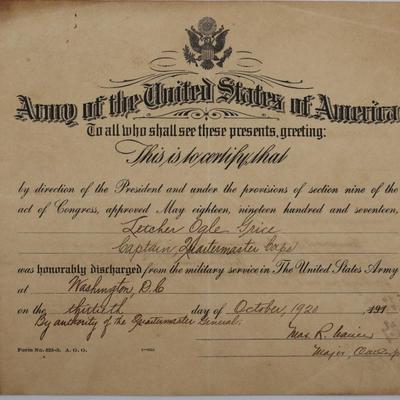 Army of the United States of America
To all who shall see these presents, greeting:
This is to certify, that
by direction of the President and under the provisions of section nine of the
act of Congress, approved May eighteen, nineteen hundred and seventeen,
Letcher Ogle Grice
Captain, Quartermaster Corps
was honorably discharged from the military service in The United States Army
at Washington, D.C
on the thirtieth day of October, 1920 191
By authority of the Quartermaster General.
R.
Form No. 525-3. A. G. O.
Major,